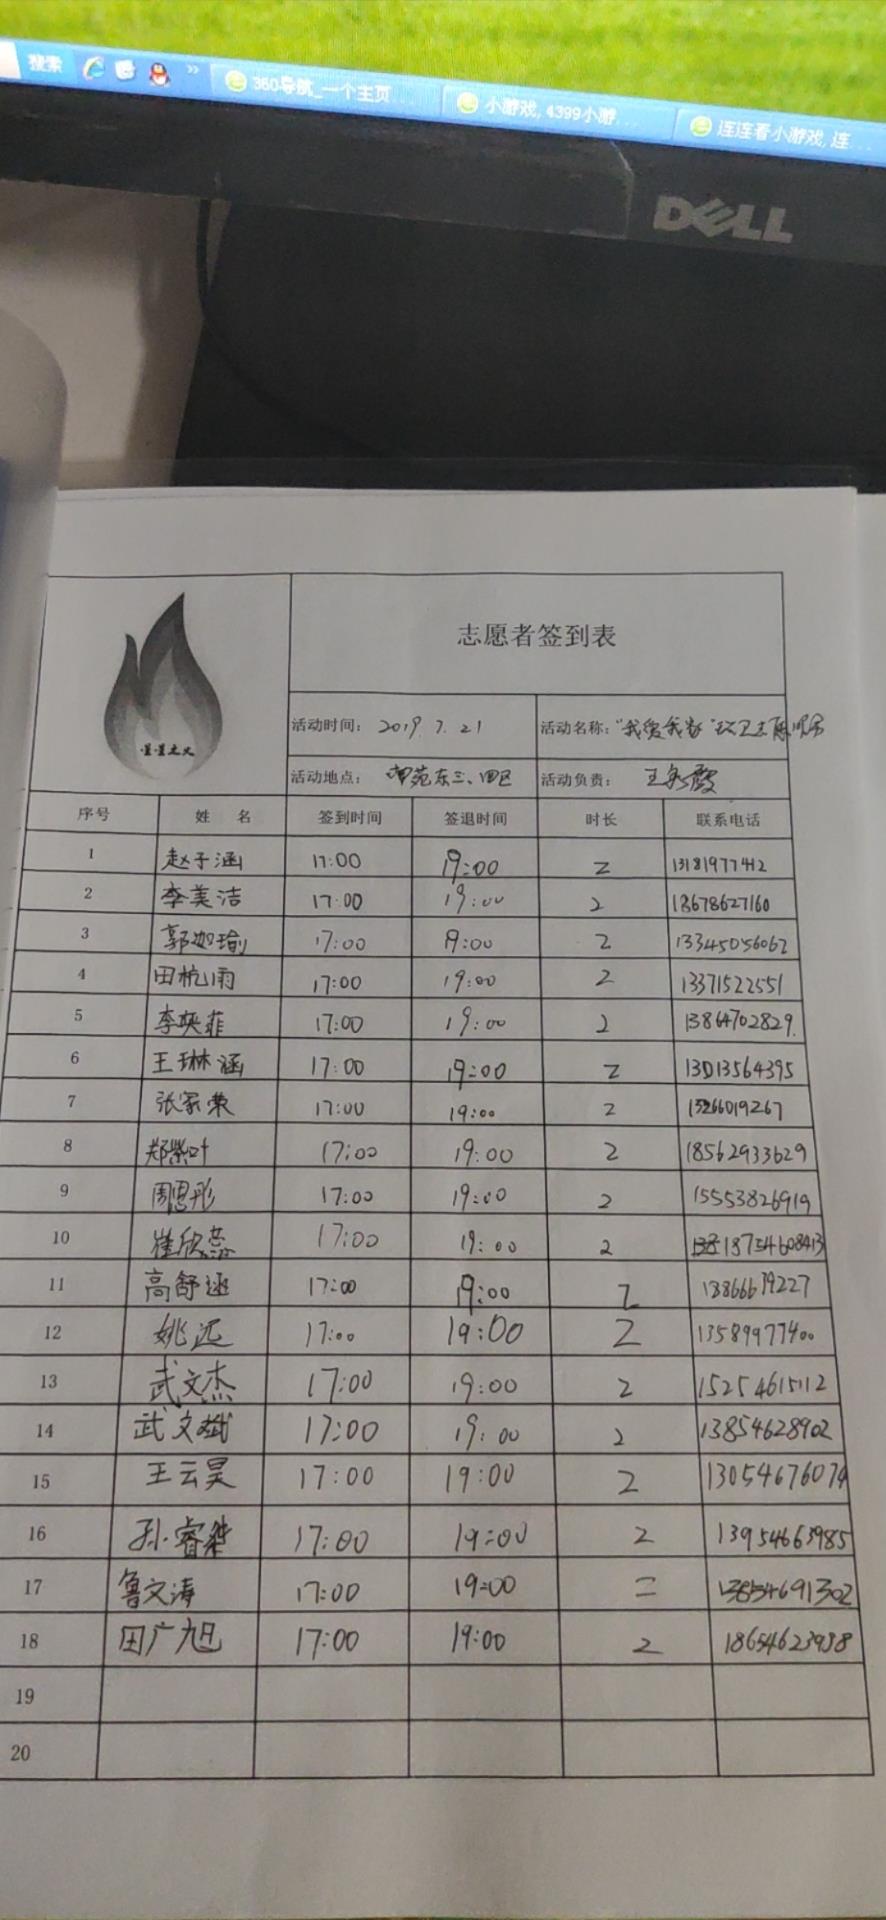 搜索 » 360导航_一个主页... 小游戏,4399小游... 连连看小游戏,连...
DELL
志愿者签到表
活动时间: 2019.7.21 活动名称:"我爱我家"
星星之火
活动地点: 苑东三、四区 活动负责: 王
序号 姓 名 签到时间 签退时间 时长 联系电话
1 赵子涵 17:00 19:00 2 13181977412
2 李美洁 17:00 19:00 2 18678627160
3 郭迦瑜 17:00 19:00 2 13345056062
4 田杭雨 17:00 19:00 2 13371522551
5 李映菲 17:00 19:00 2 13864702829
6 王琳涵 17:00 19:00 2 13013564395
7 张家荣 17:00 19:00 2 13266019267
8 郑紫叶 17:00 19:00 2 18562933629
9 周恩彤 17:00 19:00 2 15553826919
10 崔欣蕊 17:00 19:00 2 18754608413
11 高舒涵 17:00 19:00 2 13866679227
12 姚远 17:00 19:00 2 13589977400
13 武文杰 17:00 19:00 2 15254615112
14 武文斌 17:00 19:00 2 13854628902
15 王云昊 17:00 19:00 2 13054676079
16 孙睿桀 17:00 19:00 2 13954663985
17 鲁文涛 17:00 19:00 二 13854691302
18 田广旭 17:00 19:00 2 18654623938
19
20